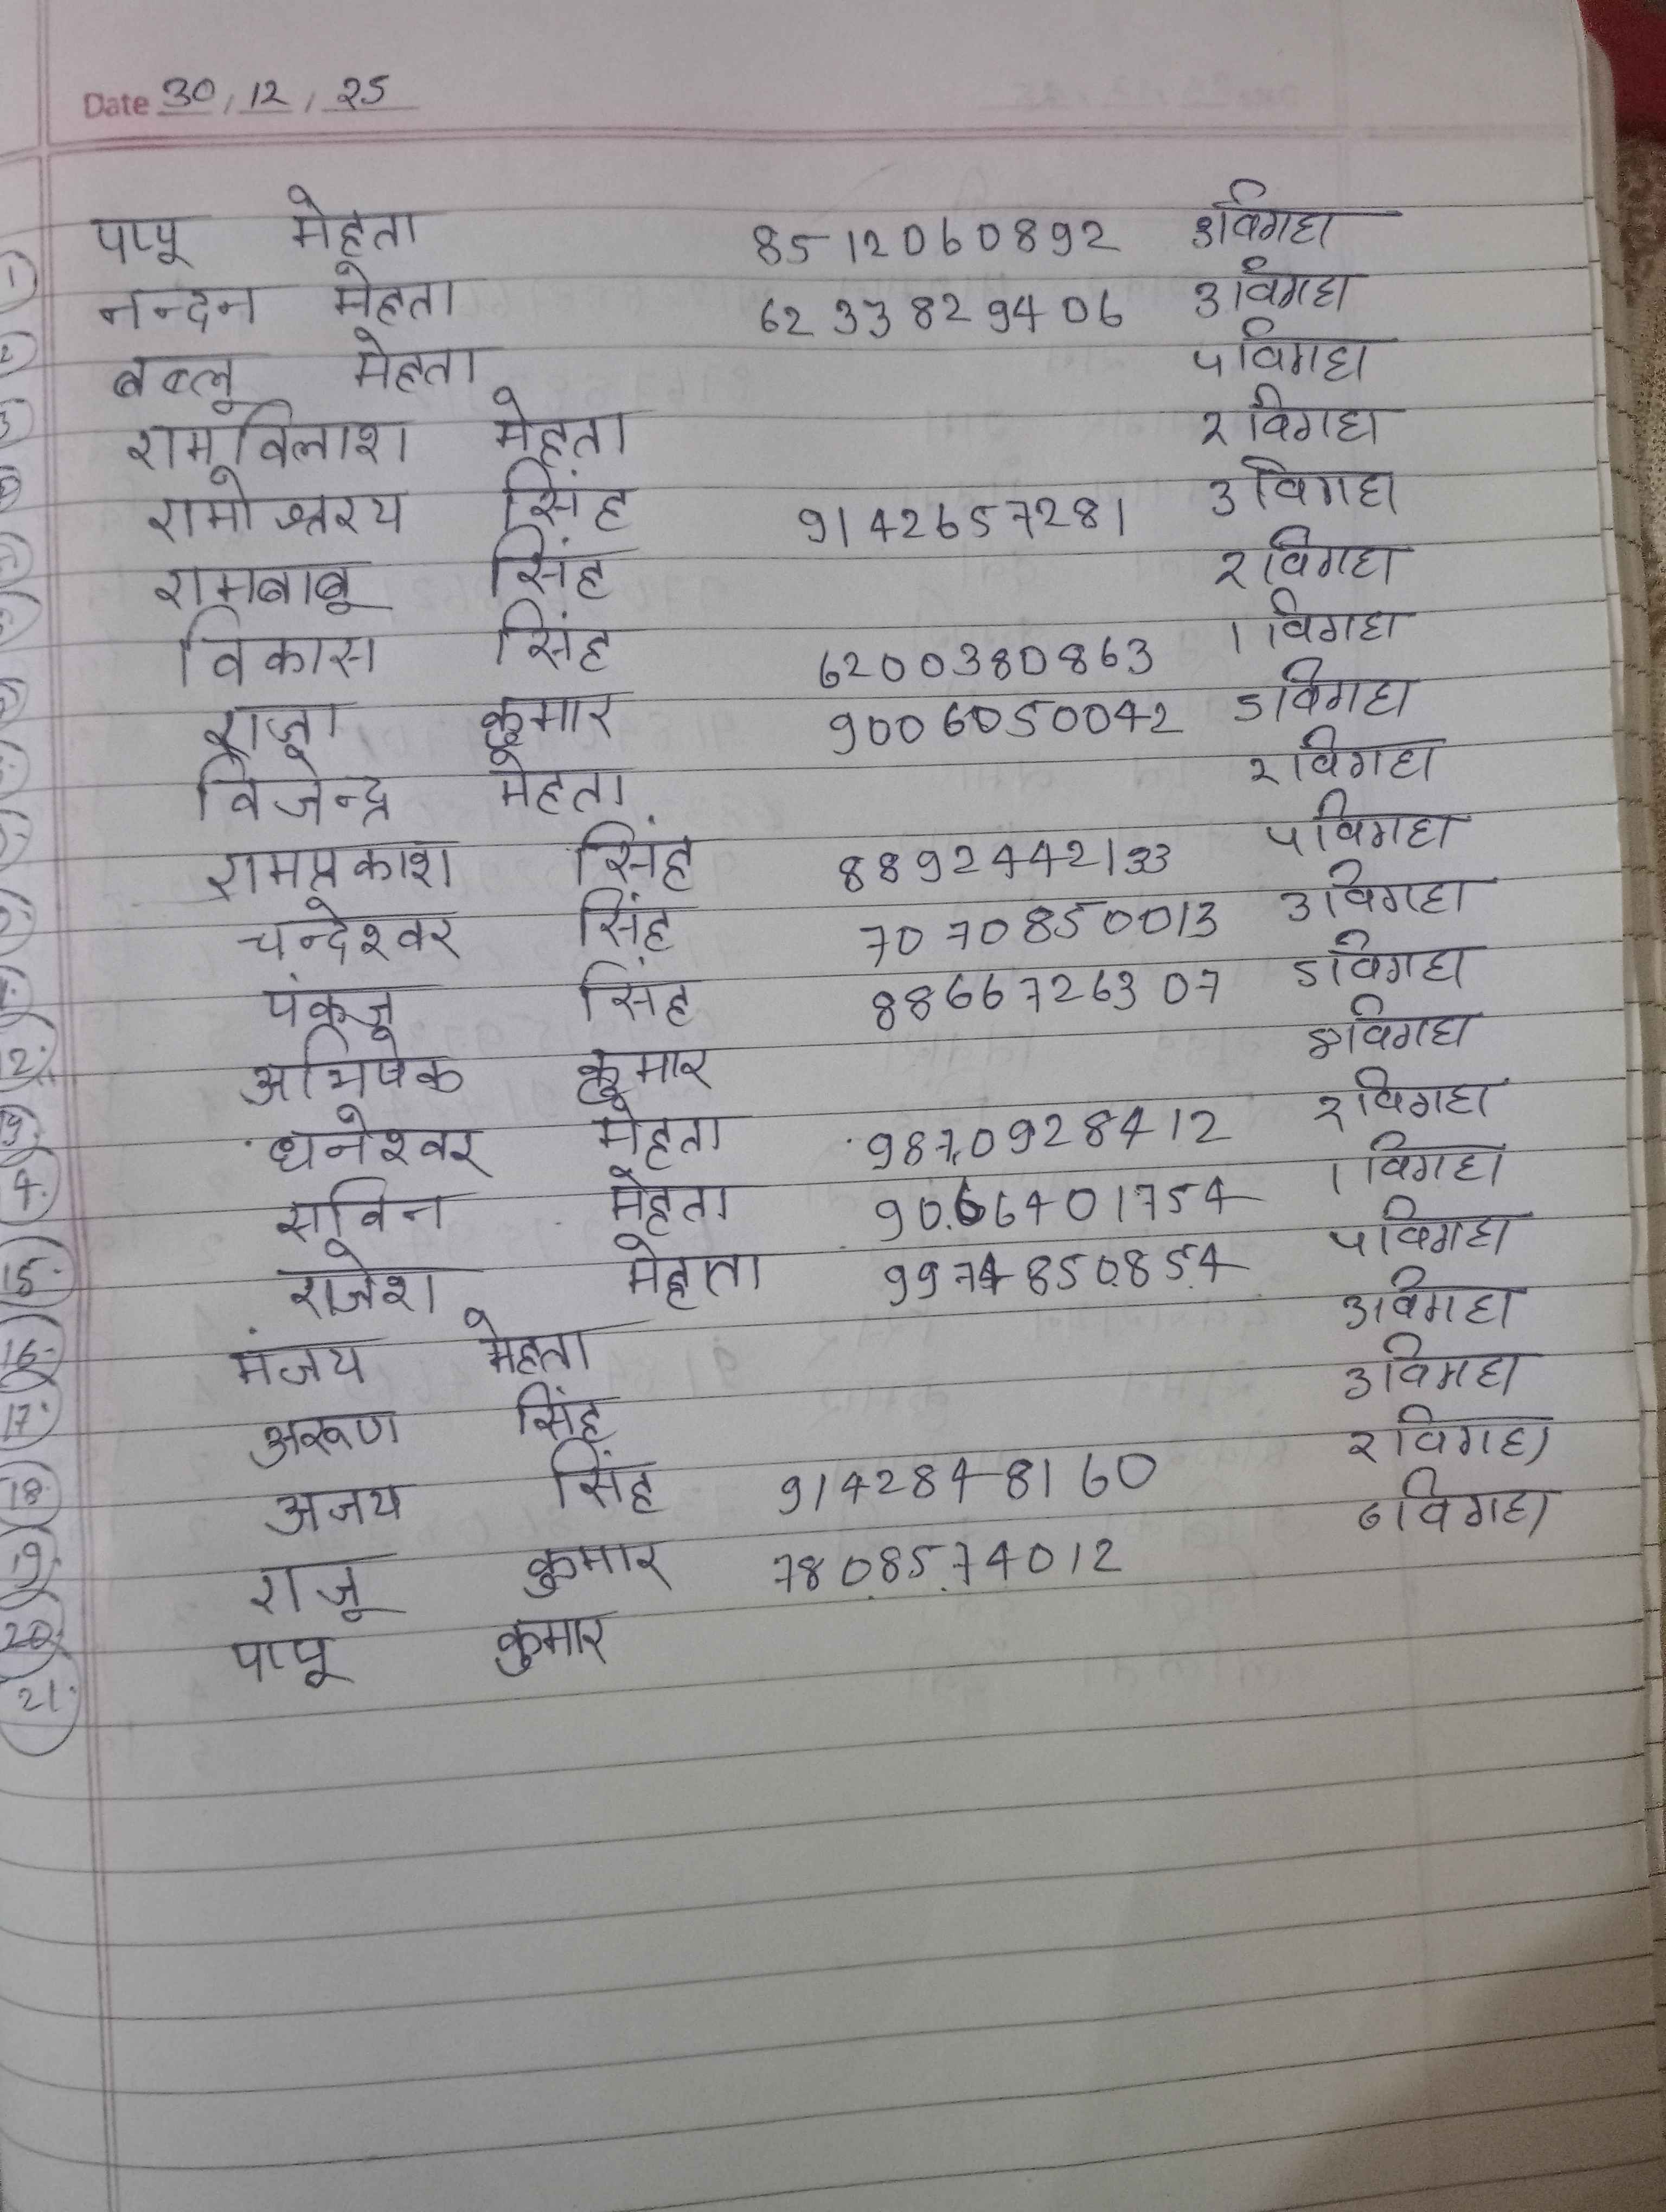 Date 30/12/25
1 पप्पू मेहता 8512060892 3विगहा
2 नन्दन मेहता 6233829406 3विगहा
3 बब्लू मेहता 5विगहा
रामविलाश मेहता 2 विगहा
रामोश्तरय सिंह 9142657281 3विगहा
रामबाबू सिंह 2विगहा
विकास सिंह 6200380863 1 विगहा
राजा कुमार 9006050042 5विगहा
विजेन्द्र मेहता 2विगहा
रामप्रकाश सिंह 8892442133 5विगहा
चन्देश्वर सिंह 7070850013 3विगहा
12. पंकज सिंह 8866726307 5विगहा
अभिषेक कुमार विगहा
4. धनेश्वर मेहता 9870928412 2विगहा
15. सविन मेहता 9066401754 1 विगहा
राजेश मेहता 9974850854 5विगहा
16. मंजय मेहता 3विगहा
17. अरूण सिंह 3विगहा
18. अजय सिंह 9142848160 2विगहा
19. राजू कुमार 7808574012 6विगहा
20. पप्पू कुमार
21.